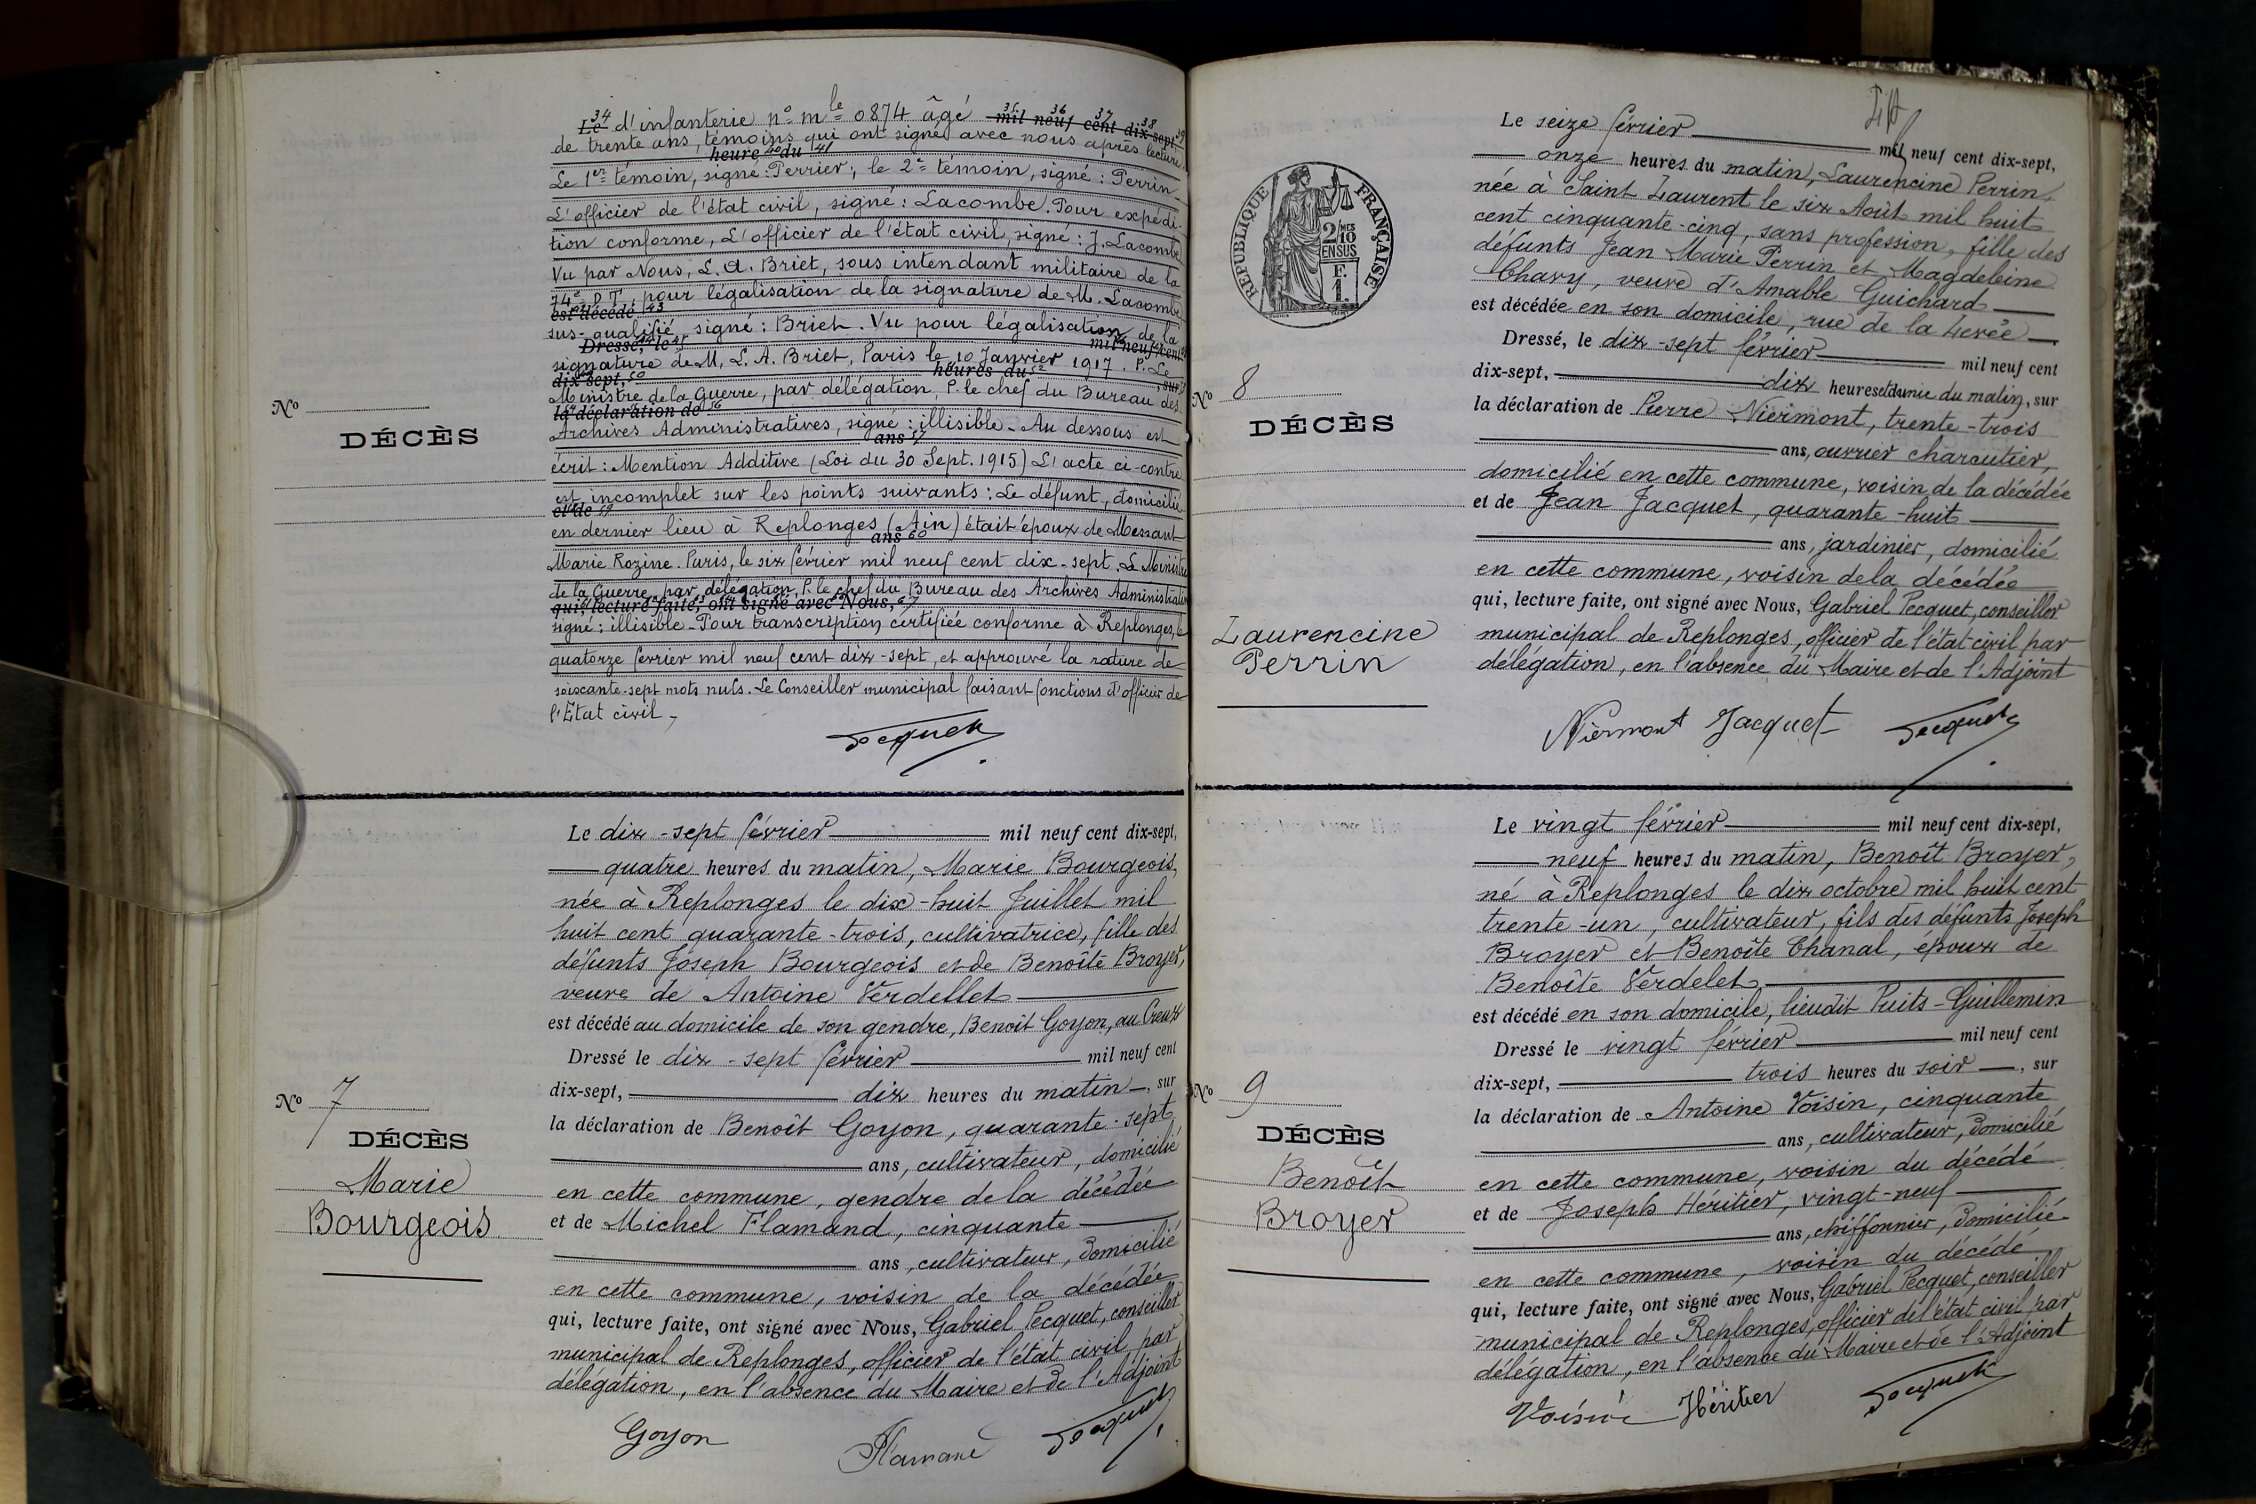 Le 34 d'infanterie n° mle 0874 âgé mil 35 neuf 36 cent 37 dix-sept 38 39
de trente ans, témoins qui ont signé avec nous après lecture
heure 40 du 41
Le 1er témoin, signé : Perrier ; le 2e témoin, signé : Perrin
L'officier de l'état civil, signé : Lacombe. Pour expédi-
tion conforme, L'officier de l'état civil, signé : J. Lacombe
Vu par Nous, L. A. Briet, sous intendant militaire de la
74e D T, pour légalisation de la signature de M. Lacombe
est décédé 43
sus-qualifié, signé : Briet. Vu pour légalisation de la
Dressé, le mil neuf cent
signature de M. L. A. Briet, Paris le 10 Janvier 1917. P. Le
dix-sept, 50 heures du 52 , sur
Ministre de la Guerre, par délégation, P. le chef du Bureau des
la déclaration de 56
Archives Administratives, signé : illisible. Au dessous est
ans 57
écrit : Mention Additive (Loi du 30 Sept. 1915) L'acte ci-contre
est incomplet sur les points suivants : Le défunt, domicilié
et de 59
en dernier lieu à Replonges (Ain) était époux de Messant
ans 60
Marie Rozine. Paris, le six février mil neuf cent dix-sept. Le Ministre
de la Guerre, par délégation, P. le chef du Bureau des Archives Administratives
qui, lecture faite, ont signé avec Nous, 67
signé : illisible - Pour transcription certifiée conforme à Replonges, le
quatorze février mil neuf cent dix-sept, et approuvé la rature de
soixante-sept mots nuls. Le Conseiller municipal faisant fonctions d'officier de
l'Etat civil,
Pecquet
No
DÉCÈS
No 7
DÉCÈS
Marie
Bourgeois
Le dix-sept février mil neuf cent dix-sept,
quatre heures du matin, Marie Bourgeois,
née à Replonges le dix-huit Juillet mil
huit cent quarante-trois, cultivatrice, fille des
défunts Joseph Bourgeois et de Benoîte Broyer,
veuve de Antoine Verdellet
est décédé au domicile de son gendre, Benoit Goyon, au Creux
Dressé le dix-sept février mil neuf cent
dix-sept, dix heures du matin, sur
la déclaration de Benoît Goyon, quarante-sept
ans, cultivateur, domicilié
en cette commune, gendre de la décédée
et de Michel Flamand, cinquante
ans, cultivateur, domicilié
en cette commune, voisin de la décédée
qui, lecture faite, ont signé avec Nous, Gabriel Pecquet, conseiller
municipal de Replonges, officier de l'état civil par
délégation, en l'absence du Maire et de l'Adjoint
Goyon Flamand Pecquet
RÉPUBLIQUE FRANÇAISE
2 MES
10
EN SUS
F.
1.
No 8
DÉCÈS
Laurencine
Perrin
Le seize février mil neuf cent dix-sept,
onze heures du matin, Laurencine Perrin,
née à Saint Laurent le six Août mil huit
cent cinquante-cinq, sans profession, fille des
défunts Jean Marie Perrin et Magdeleine
Chavy, veuve d'Amable Guichard
est décédée en son domicile, rue de la Levée
Dressé, le dix-sept février mil neuf cent
dix-sept, dix heures et demie du matin, sur
la déclaration de Pierre Niermont, trente-trois
ans, ouvrier charcutier,
domicilié en cette commune, voisin de la décédée
et de Jean Jacquet, quarante-huit
ans, jardinier, domicilié
en cette commune, voisin de la décédée
qui, lecture faite, ont signé avec Nous, Gabriel Pecquet, conseiller
municipal de Replonges, officier de l'état civil par
délégation, en l'absence du Maire et de l'Adjoint
Niermont Jacquet Pecquet
No 9
DÉCÈS
Benoît
Broyer
Le vingt février mil neuf cent dix-sept,
neuf heures du matin, Benoît Broyer,
né à Replonges le dix octobre mil huit cent
trente-un, cultivateur, fils des défunts Joseph
Broyer et Benoîte Chanal, époux de
Benoîte Verdelet
est décédé en son domicile, lieudit Puits-Guillemin
Dressé le vingt février mil neuf cent
dix-sept, trois heures du soir, sur
la déclaration de Antoine Voisin, cinquante
ans, cultivateur, domicilié
en cette commune, voisin du décédé
et de Joseph Héritier, vingt-neuf
ans, chiffonnier, domicilié
en cette commune, voisin du décédé
qui, lecture faite, ont signé avec Nous, Gabriel Pecquet, conseiller
municipal de Replonges, officier de l'état civil par
délégation, en l'absence du Maire et de l'Adjoint
Voisin Héritier Pecquet